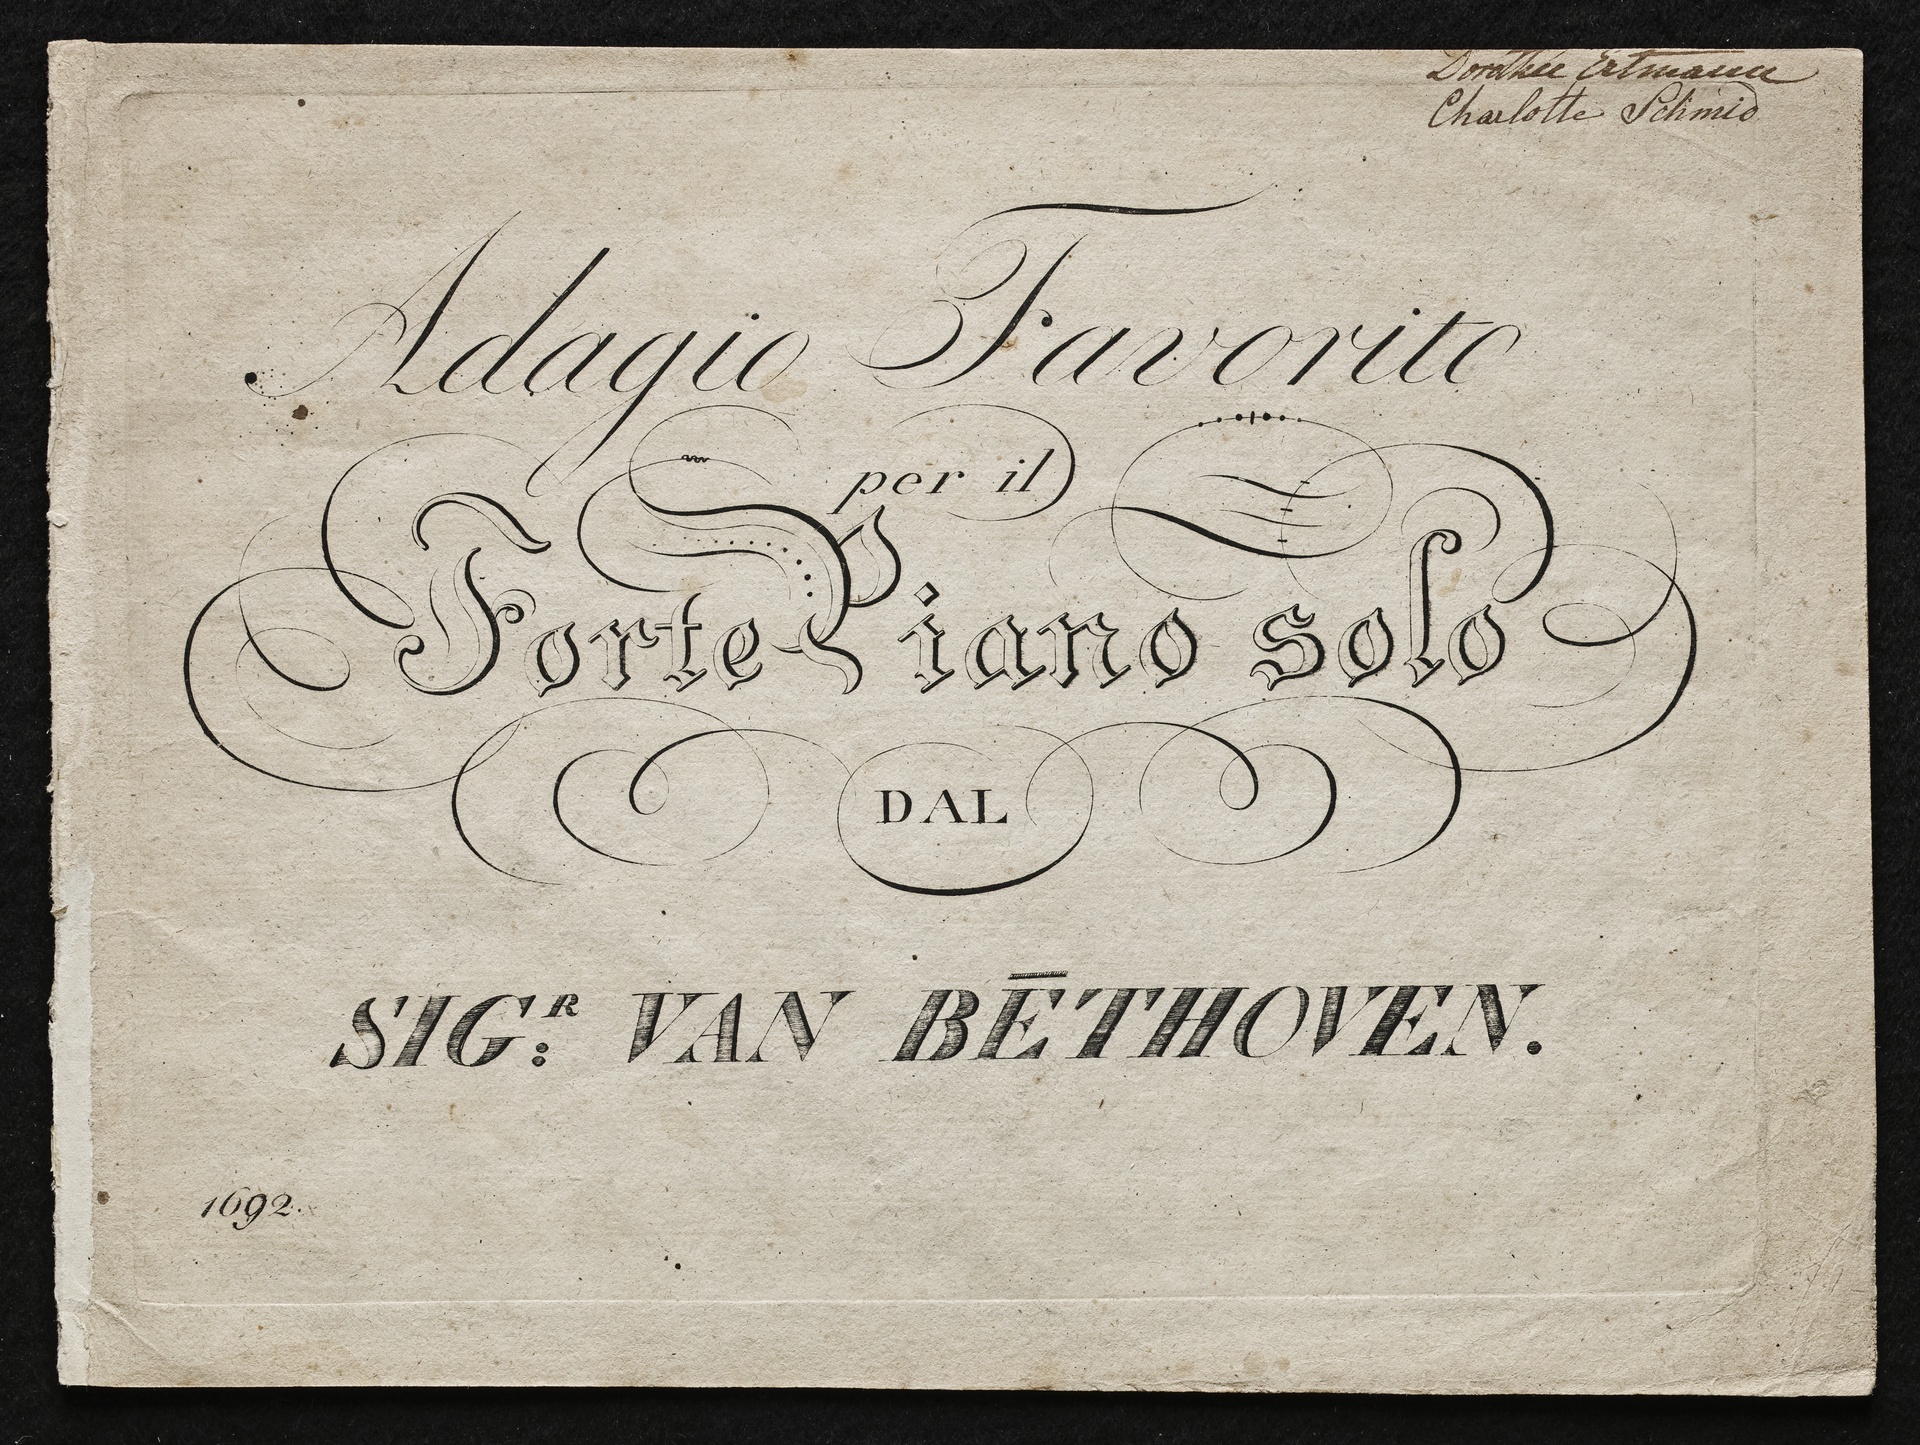 Dorothee Ertmann
Charlotte Schmid
Adagio Favorito
per il
Forte Piano solo
DAL
SIG.R: VAN BĒTHOVEN.
1692.